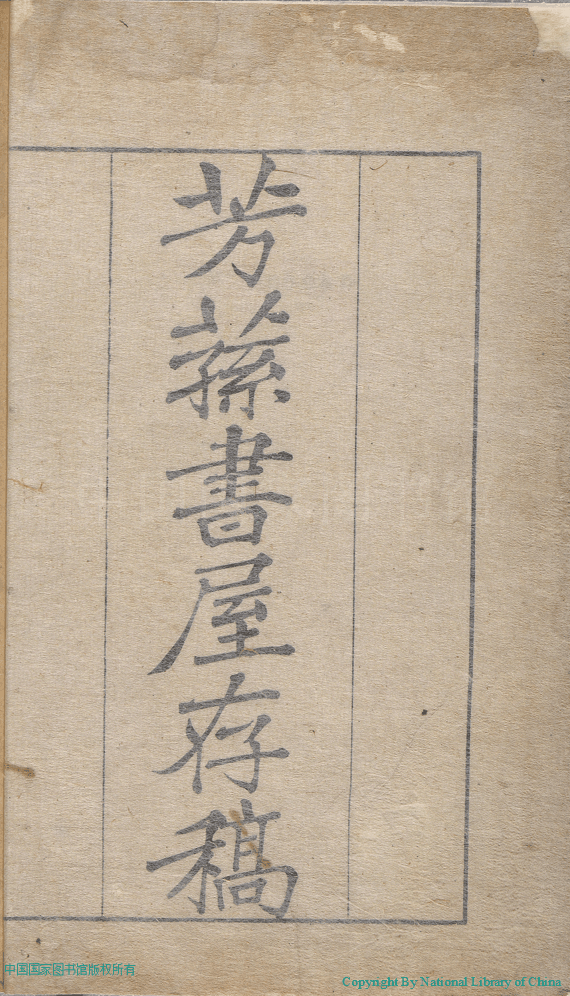 芳蓀書屋存稿
中国国家图书馆版权所有
Copyright By National Library of China